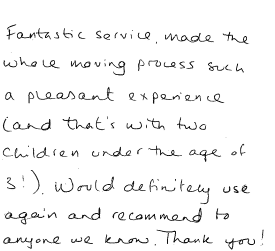 Fantastic service, made the
whole moving process such
a pleasant experience
(and that's with two
children under the age of
3!). Would definitely use
again and recommend to
anyone we know. Thank you!